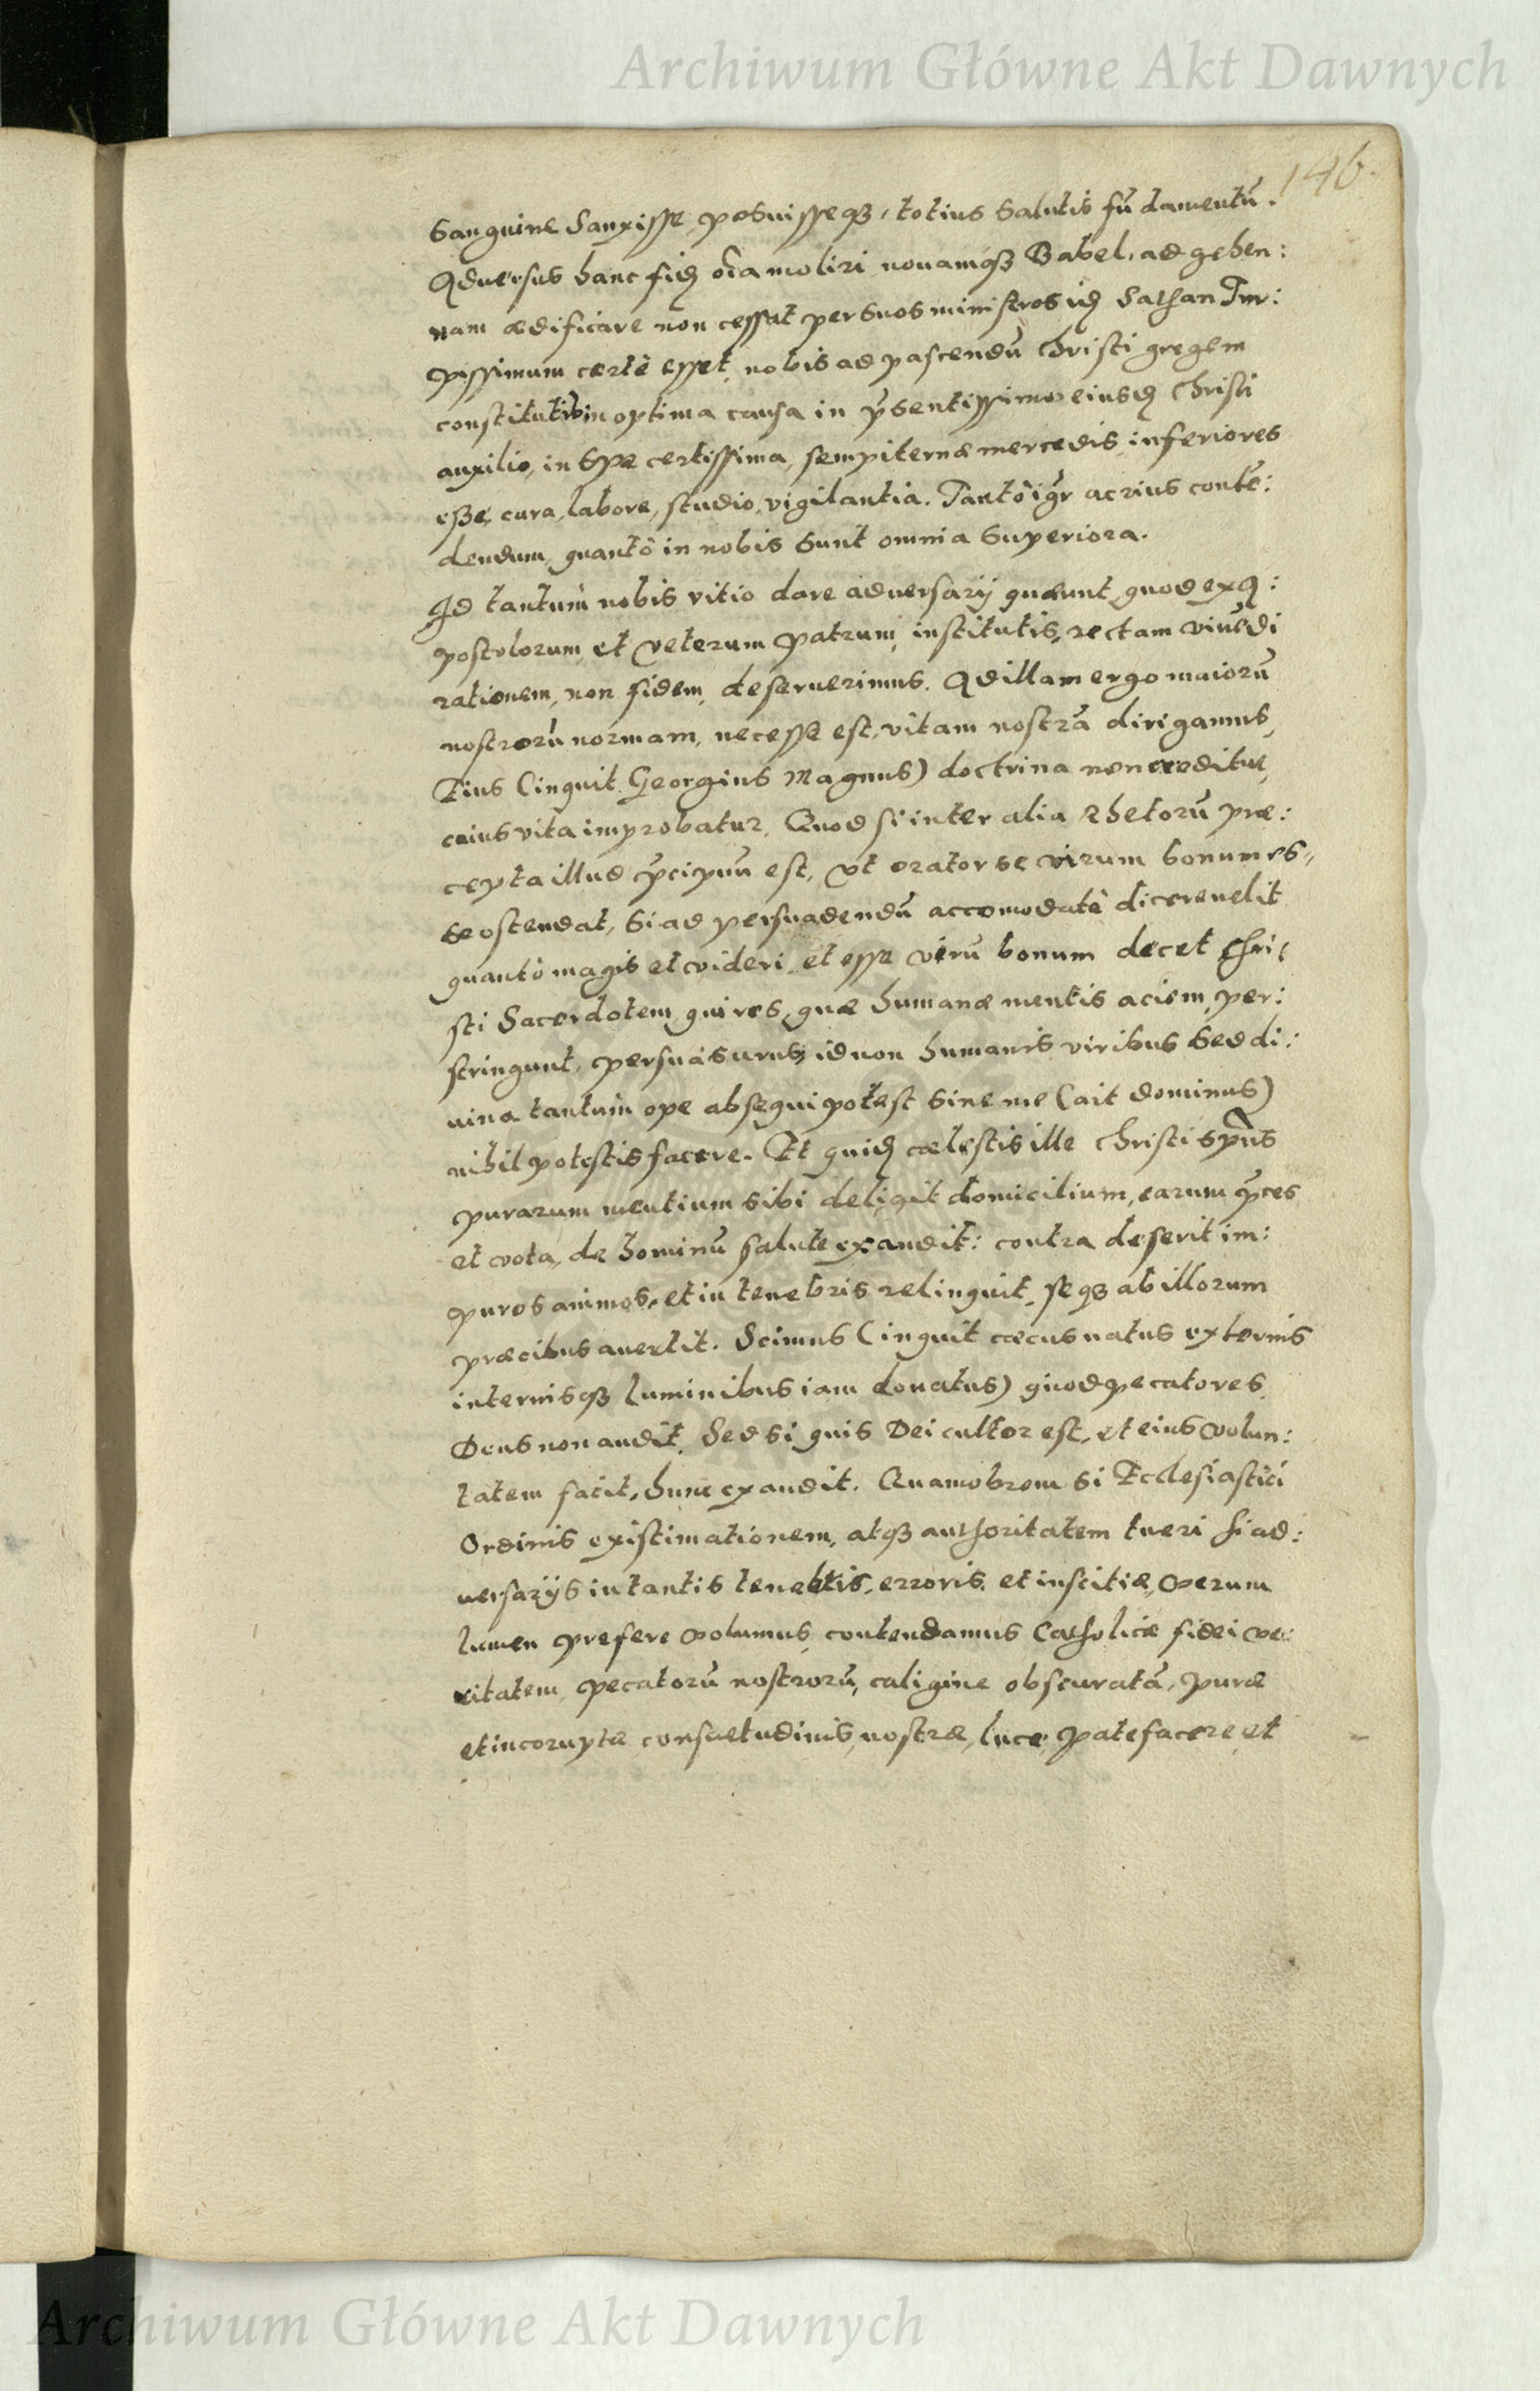 Archiwum Główne Akt Dawnych
146.
Sanguine Sanxisse, posuisseqꝫ, totius Salutis fūdamentū.
Adversus hanc fidē oīa moliri novamqꝫ Babel, ad gehen:
nam ædificare non cessat per suos ministros idē Sathan Tur:
pissimum certè esset, nobis ad pascendū Christi gregem
constitutis in optima causa in p̄sentissimo eiusdē Christi
auxilio, in Spe certissima, sempiternæ mercedis, inferiores
eße, cura, labore, studio, vigilantia. Tantò igr̄ acrius contē:
dendum, quantò in nobis Sunt omnia Superiora.
Id tantum nobis vitio dare adversarij quæunt, quod ex A:
postolorum, et veterum Patrum, institutis, rectam viuēdi
rationem, non fidem, deseruerimus. Ad illam ergo maiorū
nostrorū normam, necesse est, vitam nostrā dirigamus,
Eius (inquit Georgius Magnus) doctrina non creditur,
cuius vita improbatur. Quod si inter alia Rhetorū præ:
cepta illud p̄cipuū est, vt orator se virum bonum es„
se ostendat, si ad persuadendū accomodatè dicere uelit
quantò magis et videri, et esse virū bonum decet Chri:
sti Sacerdotem, qui res, quæ humanæ mentis aciem, per:
stringunt, persuasurus, id non humanis viribus sed di:
uina tantum ope absequi potest Sine me (ait dominus)
nihil potestis facere. Et quidē cælestis ille Christi Spūs
purarum mentium sibi deligit domicilium, earum p̄ces
et vota, de hominū salute exaudit: contra deserit im:
puros animos, et in tenebris relinquit, seqꝫ ab illorum
præcibus auertit. Scimus (inquit cæcus natus externis
internisqꝫ luminibus iam donatus) quod pecatores
Deus non audit, Sed si quis Dei cultor est, et eius volun:
tatem facit, hunc exaudit. Quamobrem si Ecclesiastici
Ordinis existimationem, atqꝫ authoritatem tueri si ad:
uersarijs in tantis tenebris, erroris, et inscitiæ, verum
lumen prefere volumus, contendamus Catholicæ fidei ve:
ritatem, pecatorū nostrorū, caligine obscuratā, puræ
et incoruptæ consuetudinis, nostræ, luce, patefacere, et
Archiwum Główne Akt Dawnych